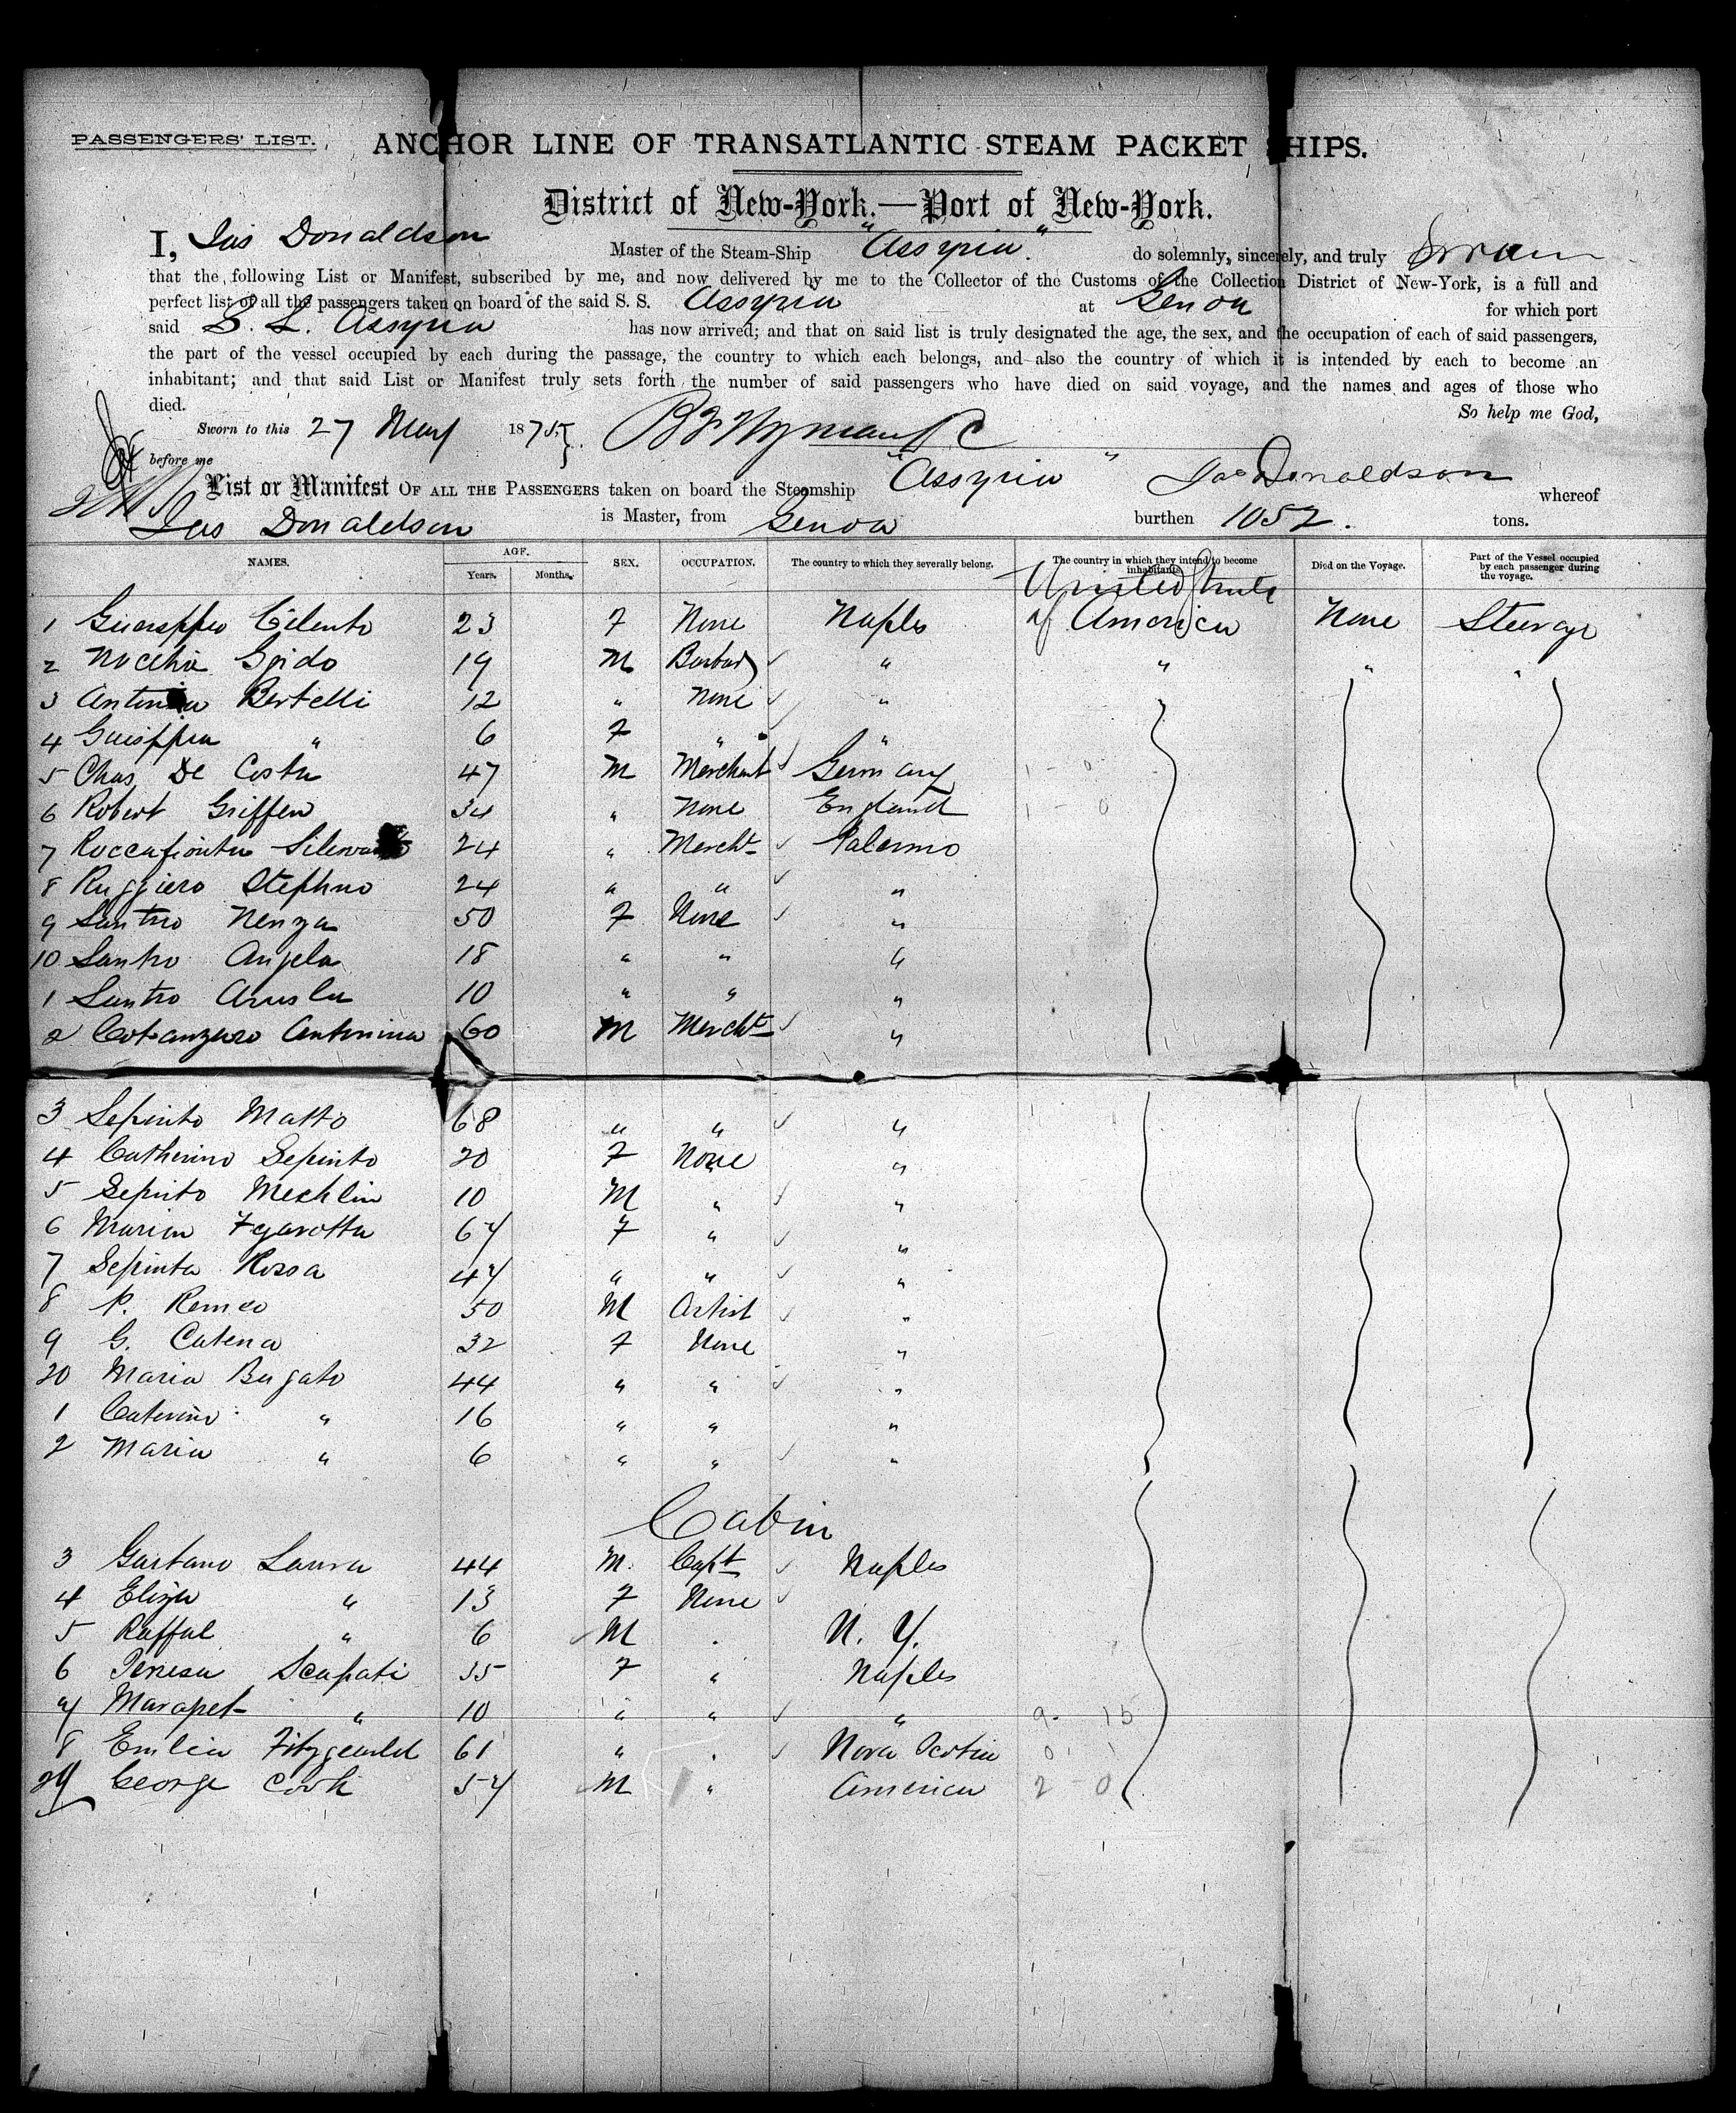 PASSENGERS' LIST. ANCHOR LINE OF TRANSATLANTIC STEAM PACKET SHIPS.
District of New-York.—Port of New-York.
I, Jas Donaldson Master of the Steam-Ship "Assyria" do solemnly, sincerely, and truly swear
that the following List or Manifest, subscribed by me, and now delivered by me to the Collector of the Customs of the Collection District of New-York, is a full and
perfect list of all the passengers taken on board of the said S. S. Assyria at Genoa for which port
said S. S. Assyria has now arrived; and that on said list is truly designated the age, the sex, and the occupation of each of said passengers,
the part of the vessel occupied by each during the passage, the country to which each belongs, and also the country of which it is intended by each to become an
inhabitant; and that said List or Manifest truly sets forth the number of said passengers who have died on said voyage, and the names and ages of those who
died. So help me God,
Sworn to this 27 May 1875
before me
"Assyria" Jas Donaldson
List or Manifest OF ALL THE PASSENGERS taken on board the Steamship whereof
Jas Donaldson is Master, from Genoa burthen 1052. tons.
NAMES. AGE. Years. Months. SEX. OCCUPATION. The country to which they severally belong. The country in which they intend to become inhabitants. Died on the Voyage. Part of the Vessel occupied by each passenger during the voyage.
United States
1 Guiseppeo Cilento 23 F None Naples of America None Steerage
2 Spido 19 M " " " "
3 Bertelli 12 " None "
4 Guiseppea " 6 F " "
5 Chas De Costa 47 M Merchant Germany 1 - 0
6 Robert Griffen 34 " None England 1 - 0
7 24 " Mercht Palermo
8 Ruggiero Stephno 24 " " "
9 Santro Nenza 50 F None "
10 Santro Angela 18 " " "
1 Santro 10 " " "
2 Cotanzaro Antonina 60 M Mercht "
3 Sepinto Matto 68 " " "
4 Catherino Sepinto 20 F None "
5 Sepinto Mechlin 10 M " "
6 Maria Fgarotta 67 F " "
7 Sepinta Rossa 47 " " "
8 P. Romeo 50 M Artist "
9 G. Catena 32 F None "
20 Maria Bugato 44 " " "
1 Caterino " 16 " " "
2 Maria " 6 " " "
Cabin
3 Gaetano Laura 44 M. Capt Naples
4 Eliza " 13 F None
5 Raffal " 6 M . N. Y.
6 Teresa Scapati 35 F " Naples
7 " 10 " " " 9 - 15
8 Emilia Fitzgearld 61 " . Nova Scotia 0 1
29 George Cook 57 M " America 2 - 0